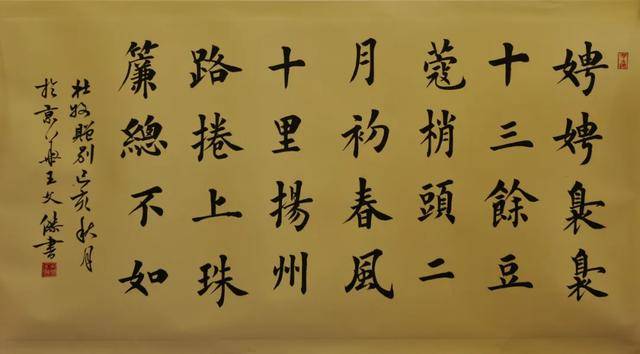 娉娉裊裊
十三餘豆
蔻梢頭二
月初春風
十里揚州
路捲上珠
簾總不如
杜牧贈別己亥秋月
於京華王文傑書